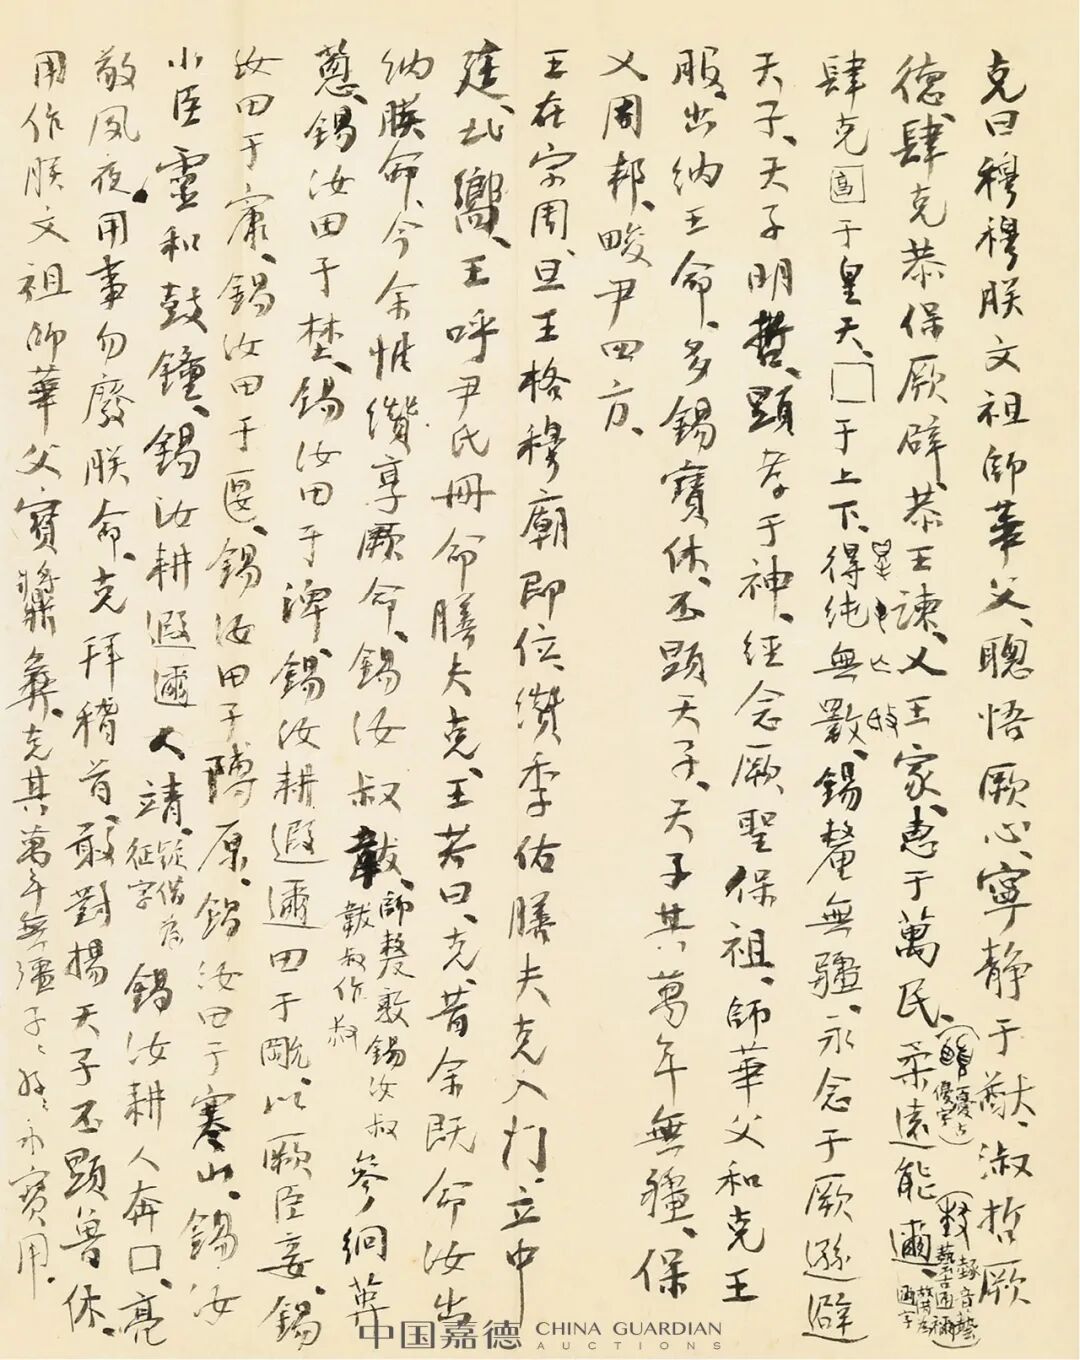 克曰穆穆朕文祖師華父、聰悟厥心、寧静于猷、淑哲厥
德、肆克恭保厥辟恭王、諫乂王家、惠于萬民、柔遠能邇、
肆克𠷎于皇天、□于上下、得純無斁、錫釐無疆、永念于厥遜避
天子、天子明哲、顯孝于神、經念厥聖保祖、師華父和克王
服、出納王命、多錫寶休、丕顯天子、天子其萬年無疆、保
乂周邦、畯尹四方、
王在宗周、旦王格穆廟即位、纘季佑膳夫克入门、立中
廷、北嚮、王呼尹氏册命膳夫克、王若曰、克、昔余既命汝出
納朕命、今余惟纘享厥命、錫汝叔韍、
師嫠敦錫汝叔
韍叔作叔
參絅葬
蔥、錫汝田于埜、錫汝田于渒、錫汝耕遐邇田于㽙、以厥臣妾、錫
汝田于寏、錫汝田于匽、錫汝田于陴原、錫汝田于寒山、錫汝
小臣靈和鼓鐘、錫汝耕遐邇人靖、
征字
錫汝耕人奔□、亮
敬夙夜、用事勿廢朕命、克拜稽首、敢對揚天子丕顯魯休、
用作朕文祖師華父寶䵼彝、克其萬年無疆子、永寶用、
中国嘉德 CHINA GUARDIAN
AUCTIONS